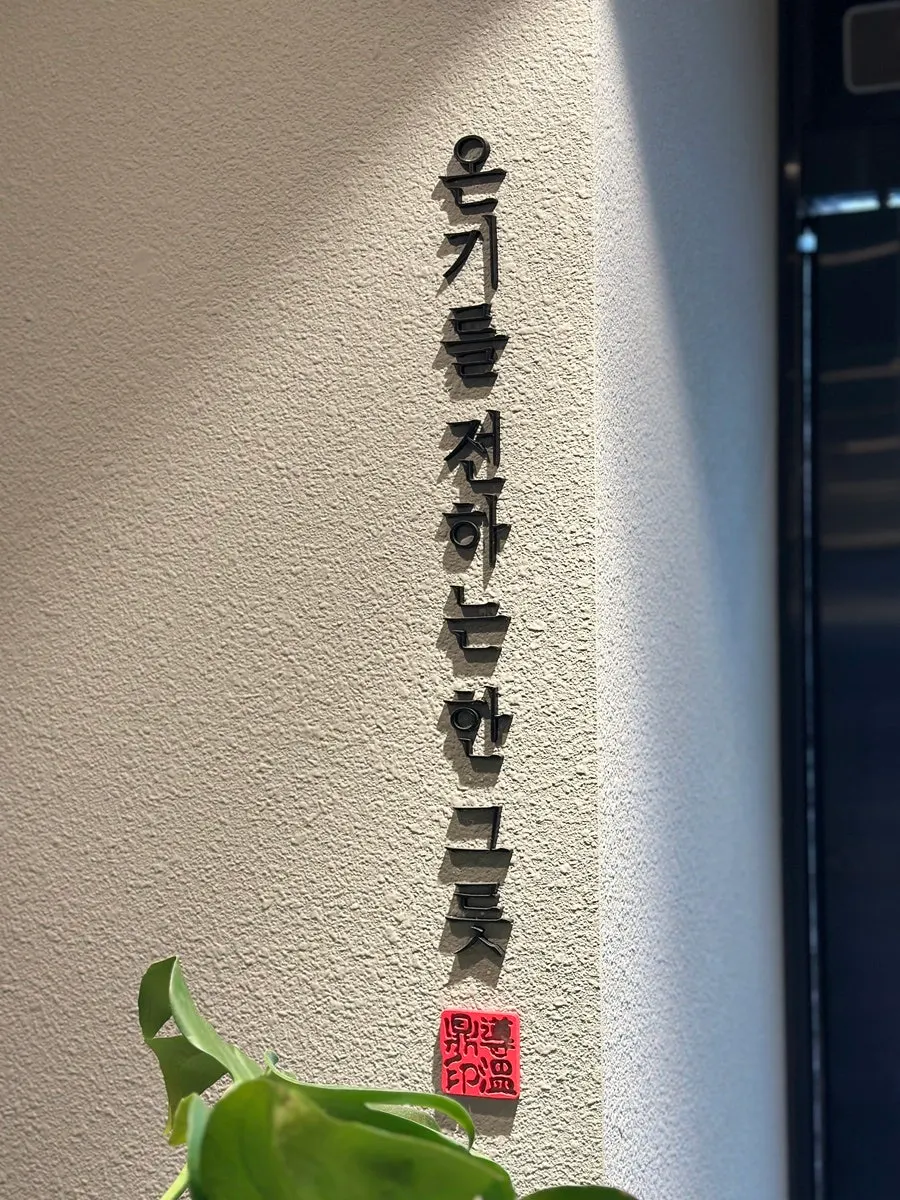 온기를 전하는 한 그릇
溫鼎印